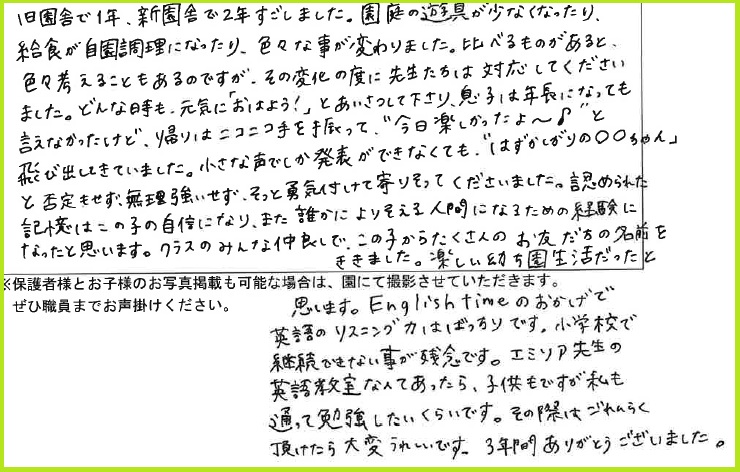 旧園舎で1年、新園舎で2年すごしました。園庭の遊具が少なくなったり、
給食が自園調理になったり、色々な事が変わりました。比べるものがあると、
色々考えることもあるのですが、その変化の度に先生たちは対応してください
ました。どんな時も、元気に「おはよう!」とあいさつして下さり、息子は年長になっても
言えなかったけど、帰りはニコニコ手を振って、"今日楽しかったよ〜♪"と
飛び出してきていました。小さな声でしか発表ができなくても、"はずかしがりの〇〇ちゃん」
と否定もせず、無理強いせず、そっと勇気付けて寄りそってくださいました。認められた
記憶はこの子の自信になり、また誰かによりそえる人間になるための経験に
なったと思います。クラスのみんな仲良しで、この子からたくさんのお友だちの名前を
ききました。楽しい幼ち園生活だったと
※保護者様とお子様のお写真掲載も可能な場合は、園にて撮影させていただきます。
ぜひ職員までお声掛けください。
思います。English timeのおかげで
英語のリスニング力はばっちりです。小学校で
継続できない事が残念です。エミリア先生の
英語教室なんてあったら、子供もですが私も
通って勉強したいくらいです。その際はごれんらく
頂けたら大変うれしいです。3年間ありがとうございました。